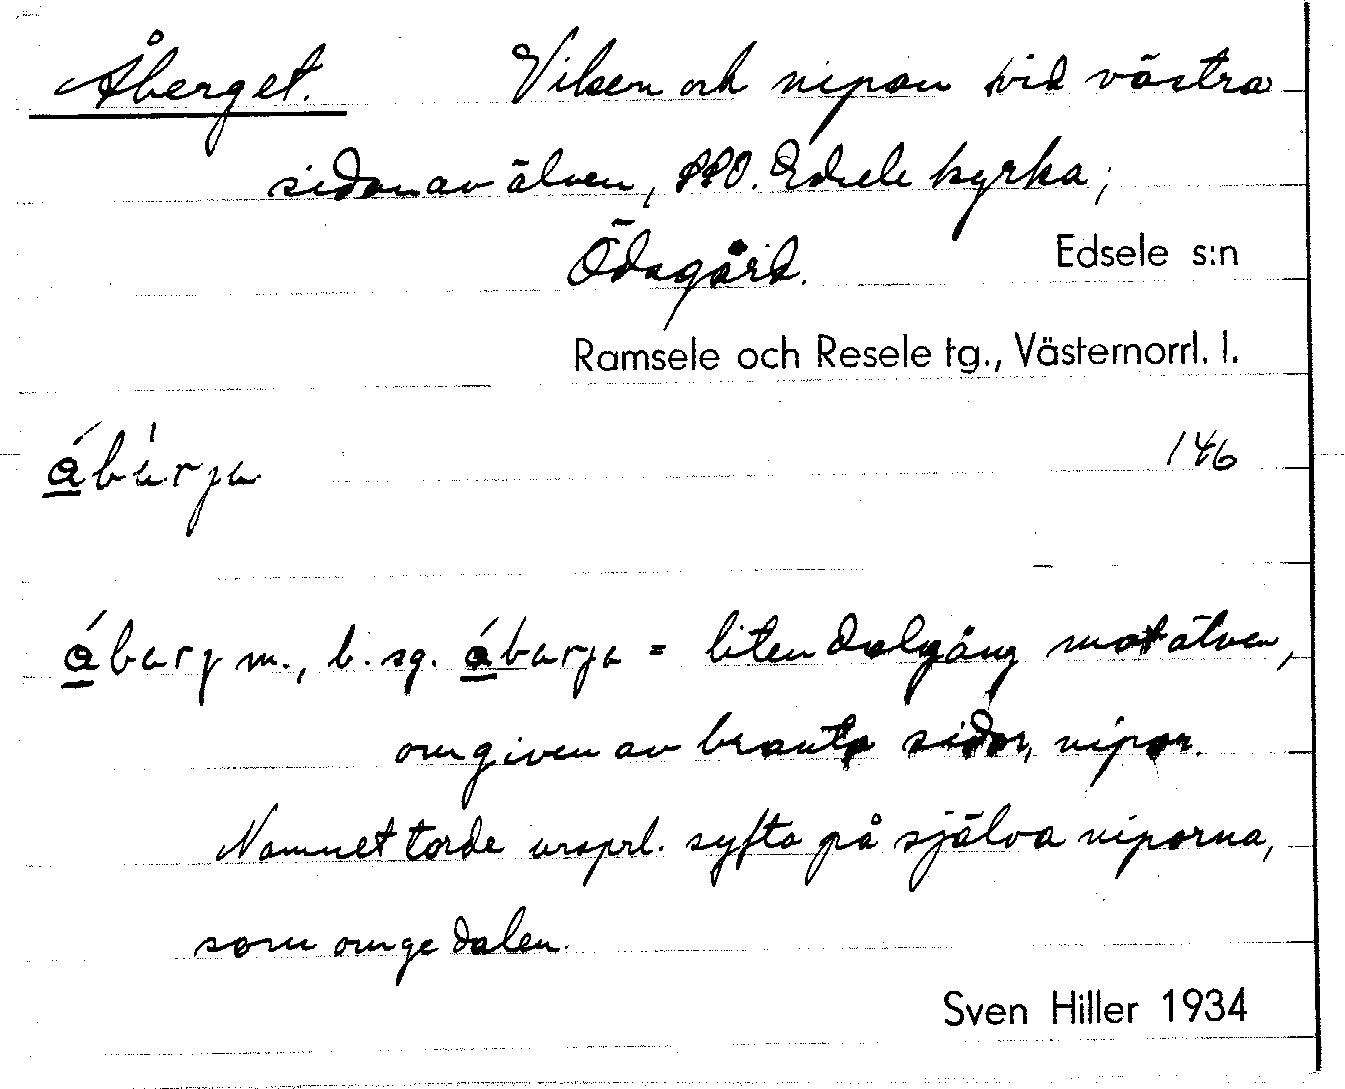 Åberget. Viken och nipan vid västra
sidan av älven, SSO. Edsele kyrka;
Ödsgård. Edsele s:n
Ramsele och Resele tg., Västernorrl. l.
ábàrja 146
ábarj m., b. sg. ábarja = liten dalgång mot älven,
omgiven av branta sidor, nipor.
Namnet torde ursprl. syfta på själva niporna,
som omge dalen.
Sven Hiller 1934